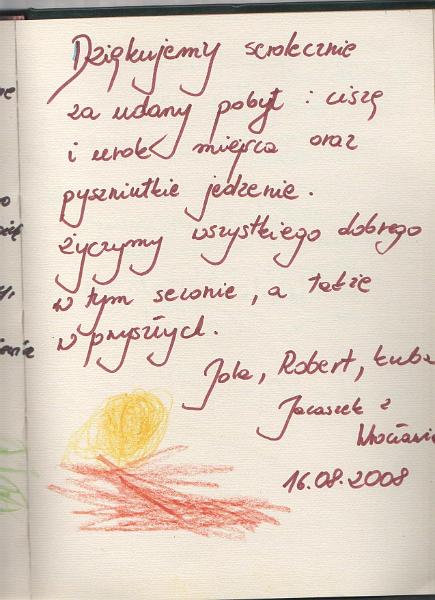 Dziękujemy serdecznie
za udany pobyt : ciszę
i urok miejsca oraz
pyszniutkie jedzenie.
życzymy wszystkiego dobrego
w tym sezonie, a także
w przyszłych.
Jola, Robert, Kuba
Jacaszek z
16.08.2008